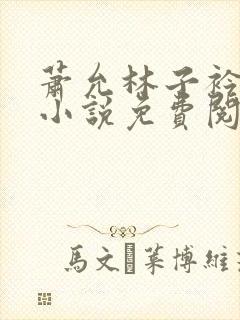 蕭允林子衿
小說免費閱
馬文·萊博維